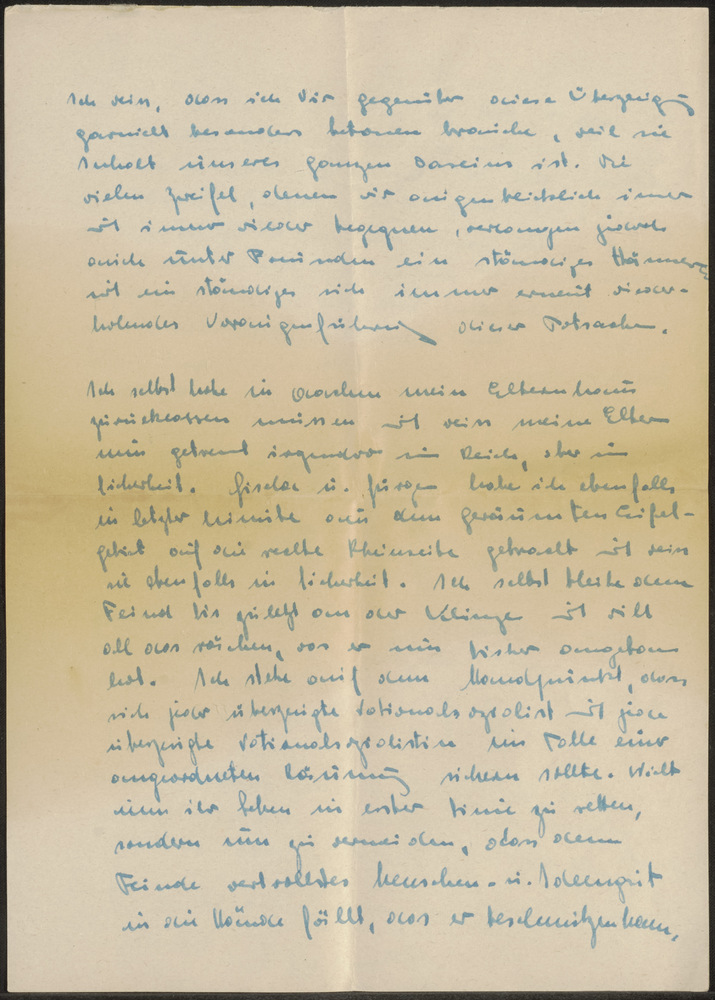 Ich weiss, dass ich Dir gegenüber diese Überzeugung
garnicht besonders betonen brauche, weil sie
Inhalt unseres ganzen Daseins ist. Die
vielen Zweifel, denen wir augenblicklich immer
und immer wieder begegnen, verlangen jedoch
auch unter Freunden ein ständiges
und ein ständiges sich immer erneut wieder-
holendes Voraugenführen dieser Tatsachen.
Ich selbst habe in Aachen mein Elternhaus
zurücklassen müssen und weiss meine Eltern
nun getrennt irgendwo im Reich, aber in
Sicherheit. Gisela u. Jürgen habe ich ebenfalls
in letzter Minute aus dem geräumten Eifel-
gebiet auf die rechte Rheinseite gebracht und weiss
sie ebenfalls in Sicherheit. Ich selbst bleibe dem
Feind bis zuletzt an der Klinge und will
all das rächen, was er uns bisher angetan
hat. Ich stehe auf dem Standpunkt, dass
sich jeder überzeugte Nationalsozialist und jede
überzeugte Nationalsozialistin im Falle einer
angeordneten Räumung sichern sollte. Nicht
um ihr Leben in erster Linie zu retten,
sondern um zu vermeiden, dass dem
Feinde wertvollstes Menschen- u. Ideengut
in die Hände fällt, das er beschmutzen kann,